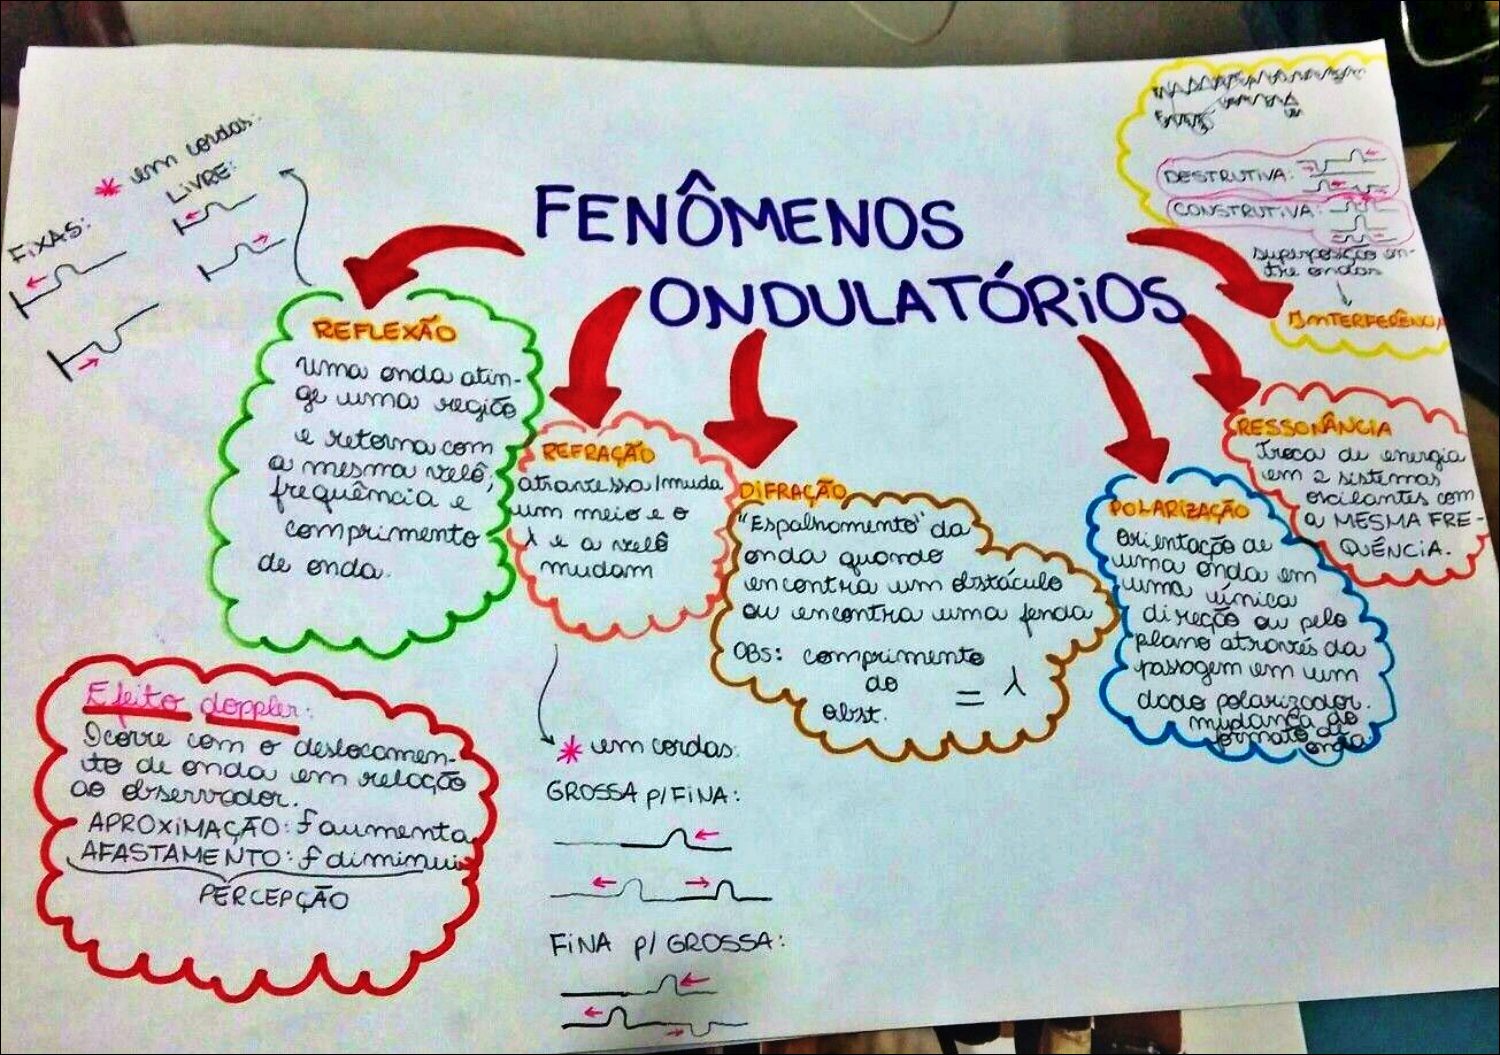 FENÔMENOS
ONDULATÓRIOS
* em cordas:
LIVRE:
FIXAS:
REFLEXÃO
uma onda atin-
ge uma região
e retorna com
a mesma velô,
frequência e
comprimento
de onda.
REFRAÇÃO
atravessa/muda
um meio e o
λ e a velô
mudam
* em cordas:
GROSSA p/FINA:
FINA p/ GROSSA:
DIFRAÇÃO
"Espalhamento" da
onda quando
encontra um obstáculo
ou encontra uma fenda
OBS: comprimento
do
obst. = λ
POLARIZAÇÃO
orientação de
uma onda em
uma única
direção ou pelo
plano através da
passagem em um
dado polarizador.
mudança do
formato da
onda
RESSONÂNCIA
Troca de energia
em 2 sistemas
oscilantes com
a MESMA FRE-
QUÊNCIA.
DESTRUTIVA:
CONSTRUTIVA:
superposição en-
tre ondas
INTERFERÊNCIA
Efeito doppler:
Ocorre com o deslocamen-
to de onda em relação
ao observador.
APROXIMAÇÃO: f aumenta
AFASTAMENTO: f diminui
PERCEPÇÃO